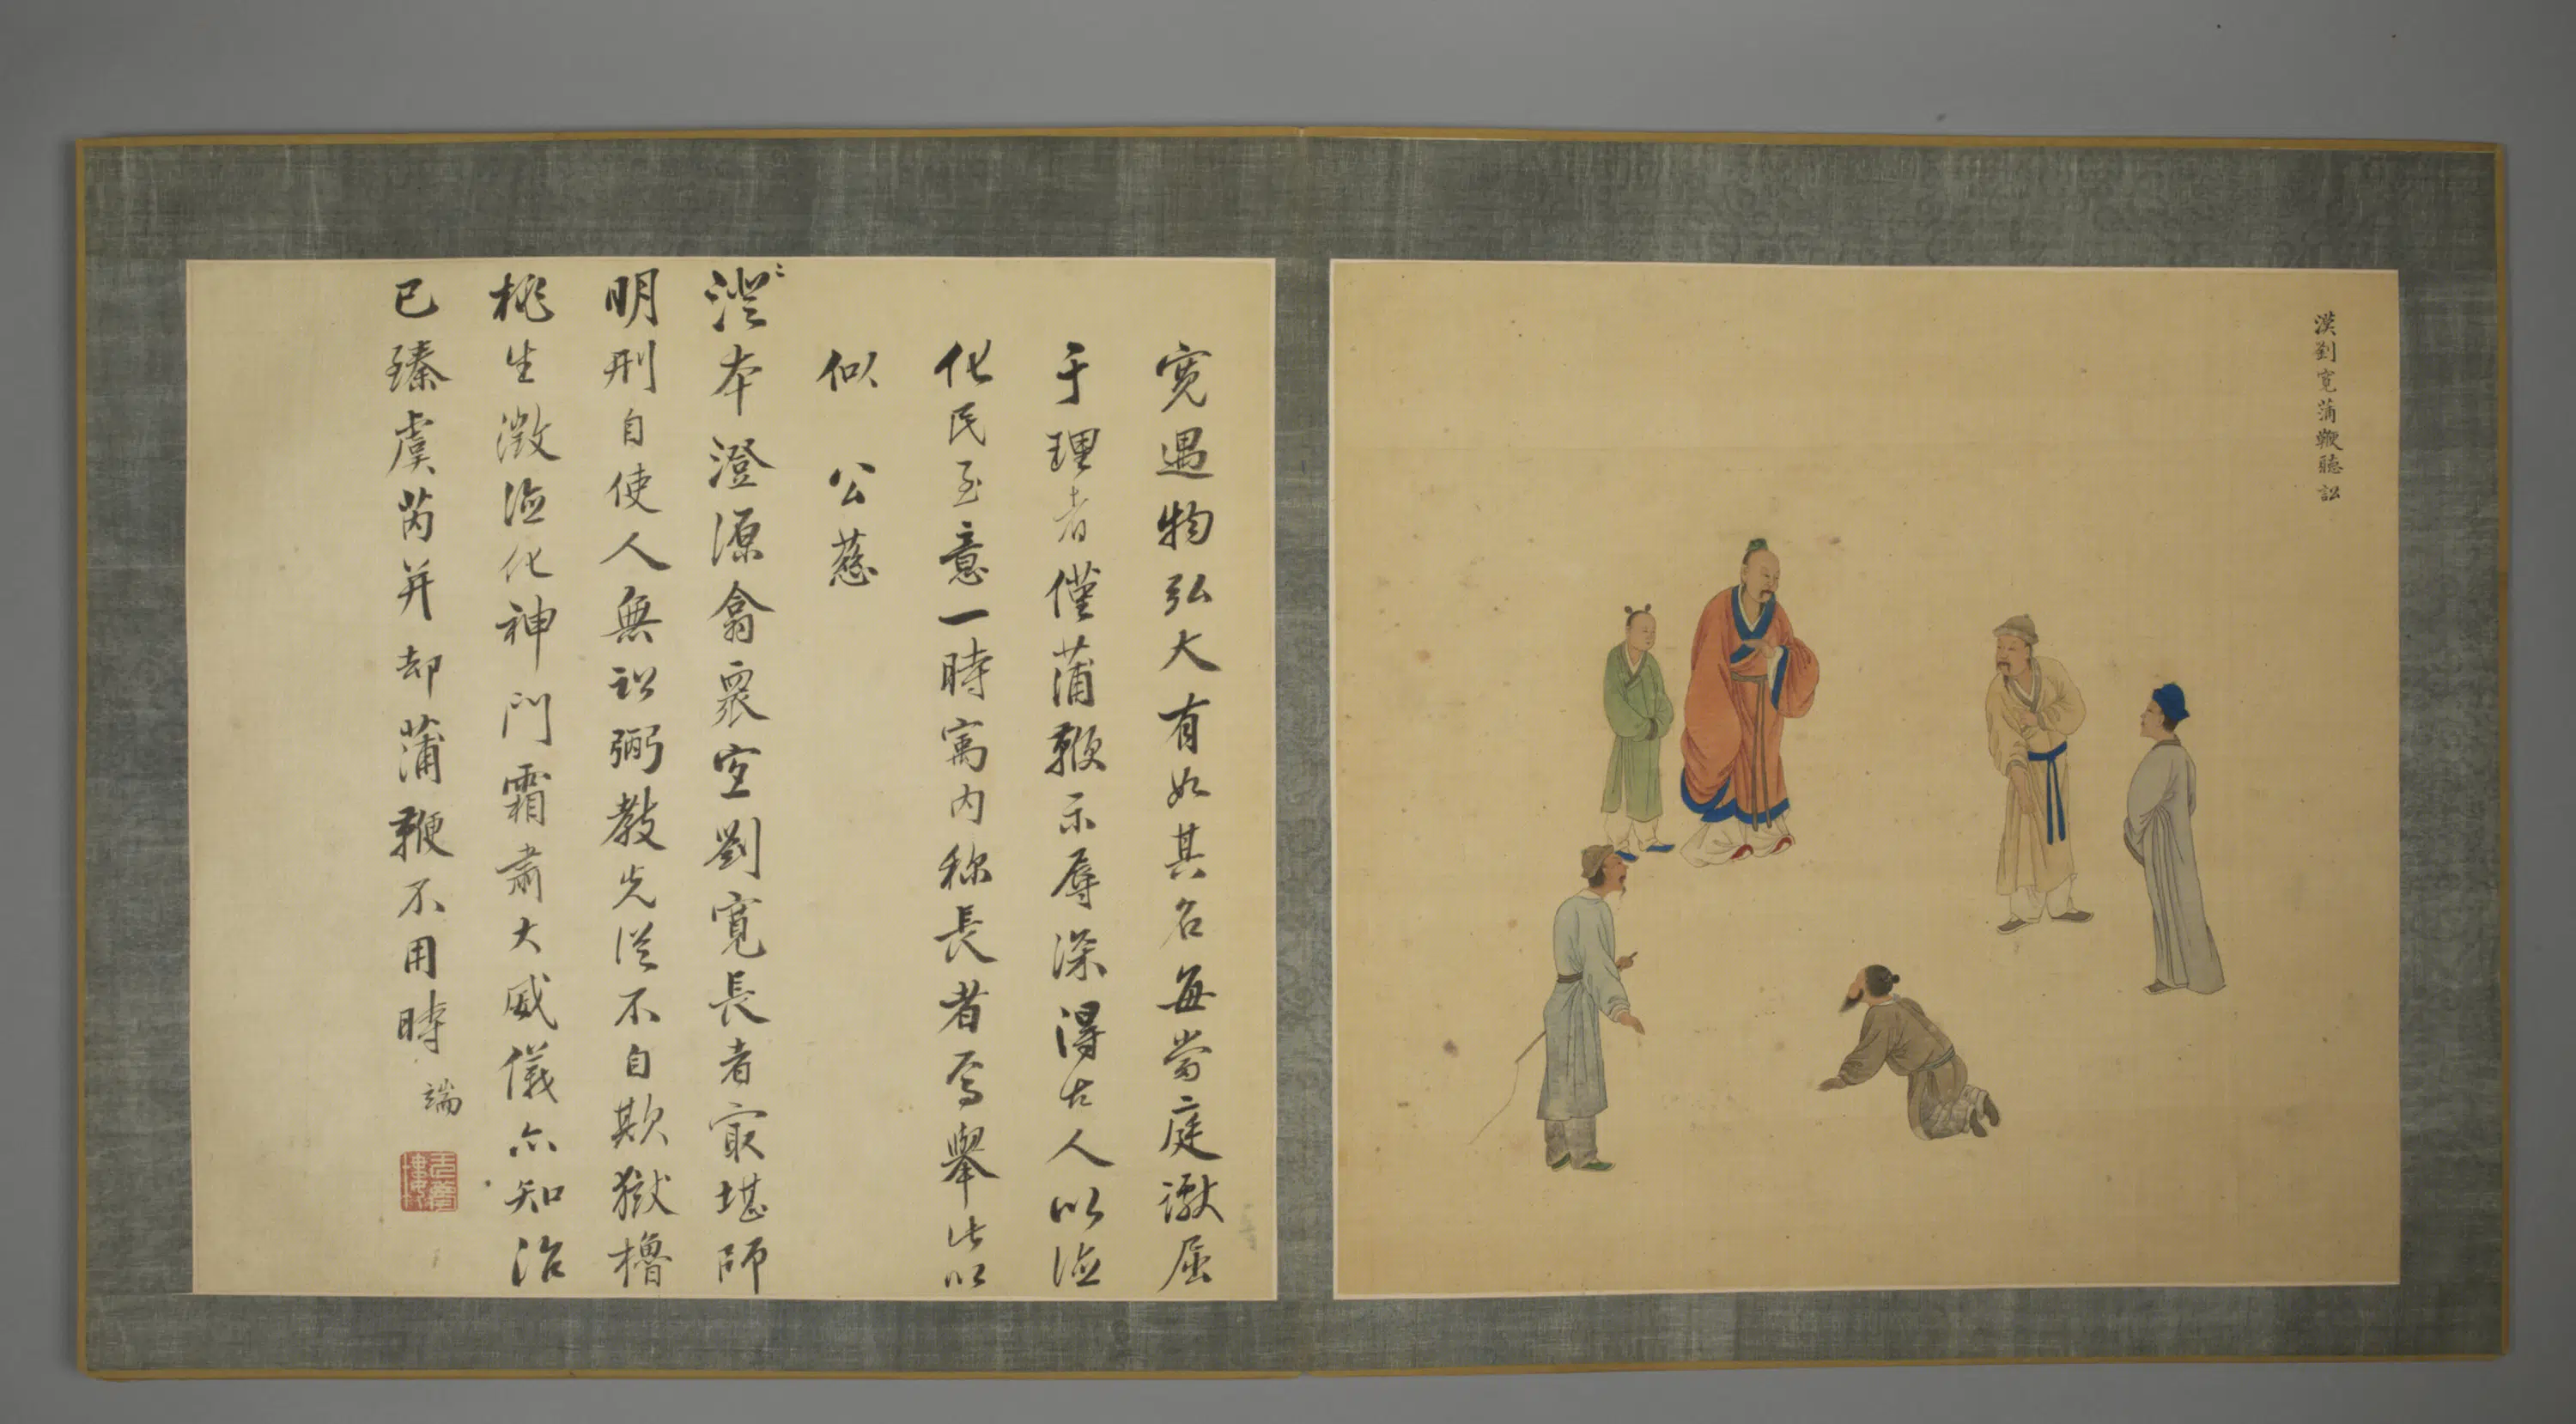 漢劉寬蒲鞭聽訟
寬遇物弘大有如其名每當庭讞屈
于理者僅蒲鞭示辱深得古人以德
化民至意一時寓内称長者焉舉此以
似公慈
澄本澄源翕衆宜劉寬長者最堪師
明刑自使人無訟弼教先從不自欺獄櫓
桃生徴德化神門霜肅大威儀亦知治
已臻虞芮并却蒲鞭不用時
端